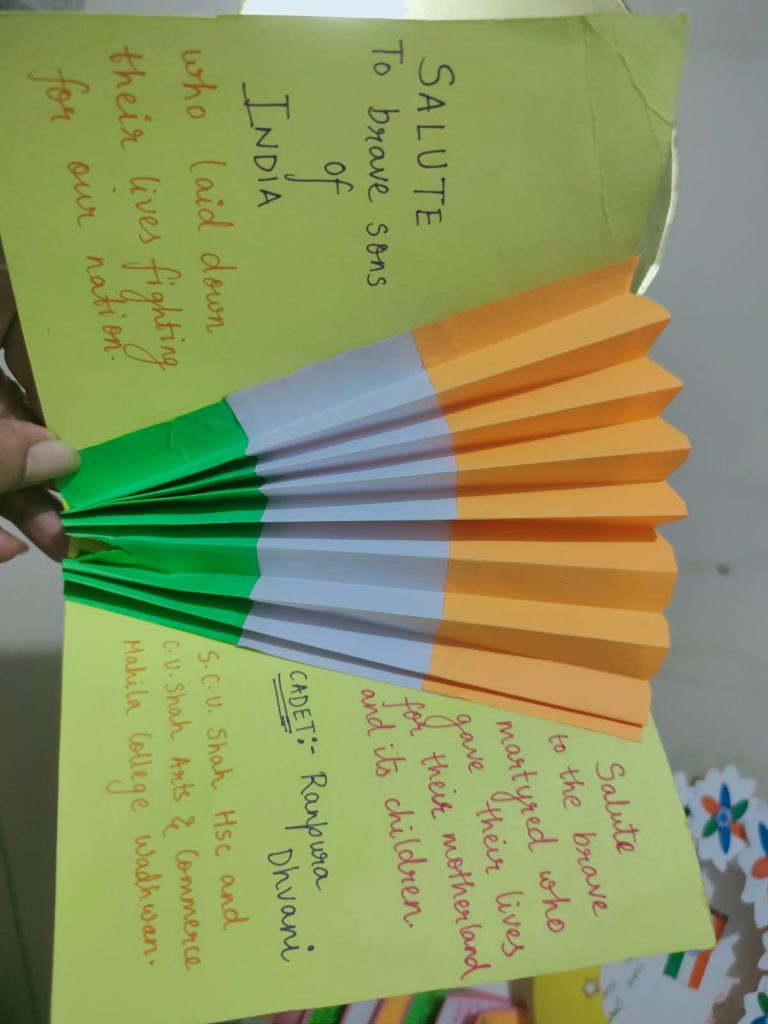 SALUTE
To brave sons
of
INDIA
who laid down
their lives fighting
for our nation.
Salute
to the brave
martyred who
gave their lives
for their motherland
and its children.
CADET:- Ranpura
Dhvani
S.C.U. Shah Hsc and
C.U. Shah Arts & Commerce
Mahila College Wadhwan.